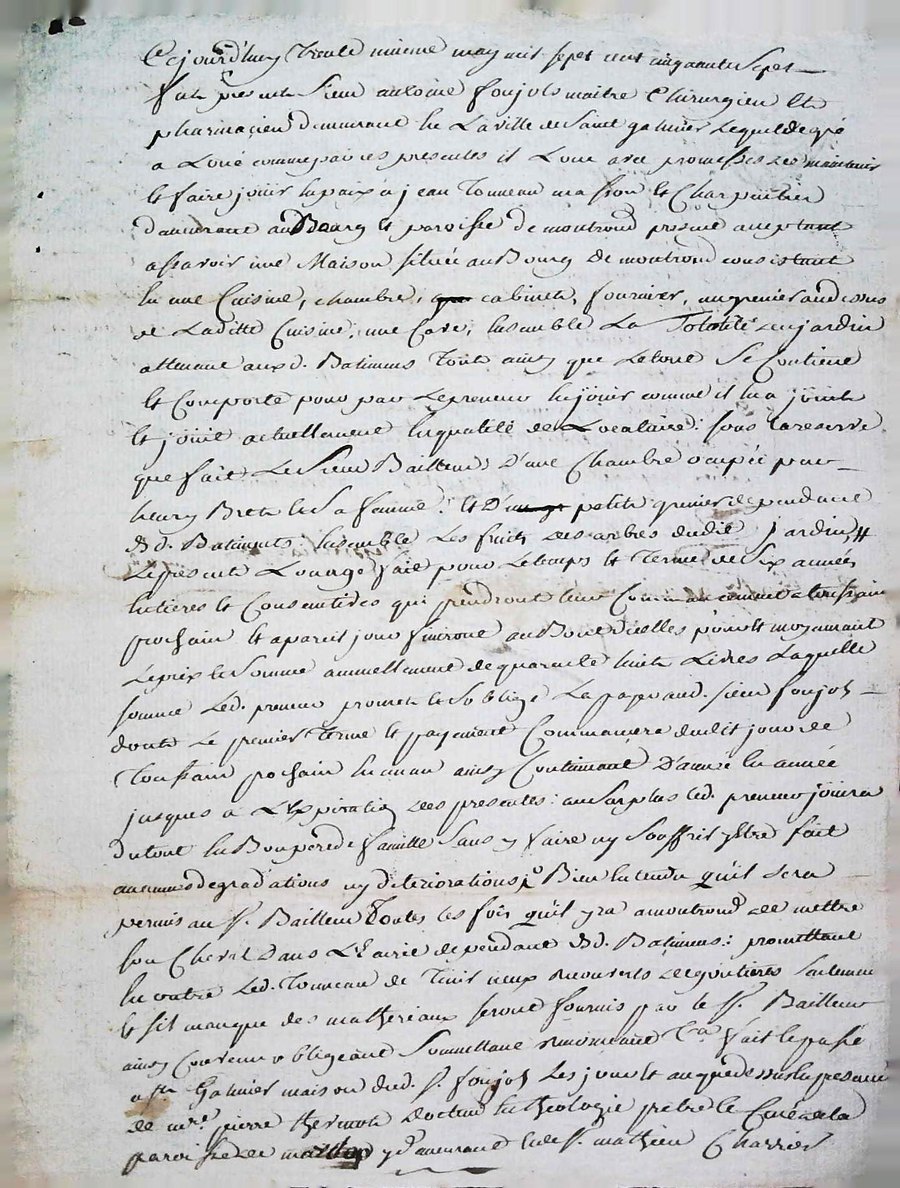 Cejourd'huy Trente unieme may mil sept cent cinquante sept
fut present Sieur antoine foujols maitre Chirurgien Et
pharmacien demeurant En La ville de Saint galmier Lequel de gré
a Loué comme par ces presentes il Loue avec promesses de maintenir
Et faire jouir En paix a jean Tonneau masson Et Charpentier
demeurant au Bourg Et paroisse de montrond present acceptant
assavoir une Maison située au Bourg de montrond consistant
En une Cuisine, chambre, cabinet, fournier, un grenier au dessus
de Laditte Cuisine, une Cave, Ensemble La Totalité du jardin
attenant aux d. Batimens Tout ainsy que Le tout Se Contient
Et Comporte pour par Le preneur En jouir comme il En a jouit
Et jouit actuellement En qualité de Locataire: sous La reserve
que fait Le Sieur Bailleur D'une Chambre ocupée pour
henry Bret Et Sa femme: Et D'un petit grenier dependant
Ds d. Batiments: Ensemble Les fruits des arbres dudit Jardin,
Le present Louage fait pour Le temps Et terme de Six années
Entieres Et Consecutives qui prendront Leur Commancement a toussain
prochain Et a pareil jour finiront au Bout d'icelles pour Et moyennant
Le prix Et Somme annuellement de quarante huit Livres Laquelle
somme Led. preneur promet Et S'oblige La payer aud. sieur foujols
dont Le premier Terme Et payement Commancera dudit jour de
Toussain prochain En un an ainsy Continuant D'année En année
jusques a L'Expiration des presentes: au Surplus Led. preneur jouira
du tout En Bon pere de famille Sans y faire ny Souffrir y Etre fait
aucunes degradations ny deteriorations, Bien Entendu qu'il Sera
permis au Sr. Bailleur Toutes Les fois qu'il yra a montrond de mettre
son Cheval dans L'Ecurie dependant Ds d. Batimens: promettant
En outre Led. Tonneau de Tenir neux recouverts de goutieres Seulement
Et s'il manque des matheriaux seront fournis par le Sr. Bailleur
ainsy Convenu obligeant Soumettant renonceant Fait Et passé
a St. Galmier maison dud. Sr. foujols Les jour Et an que dessus En presence
de mre. pierre docteur En theologie pretre Et Curé de la
paroisse de y demeurant Et de Sr. mathieu Charrier